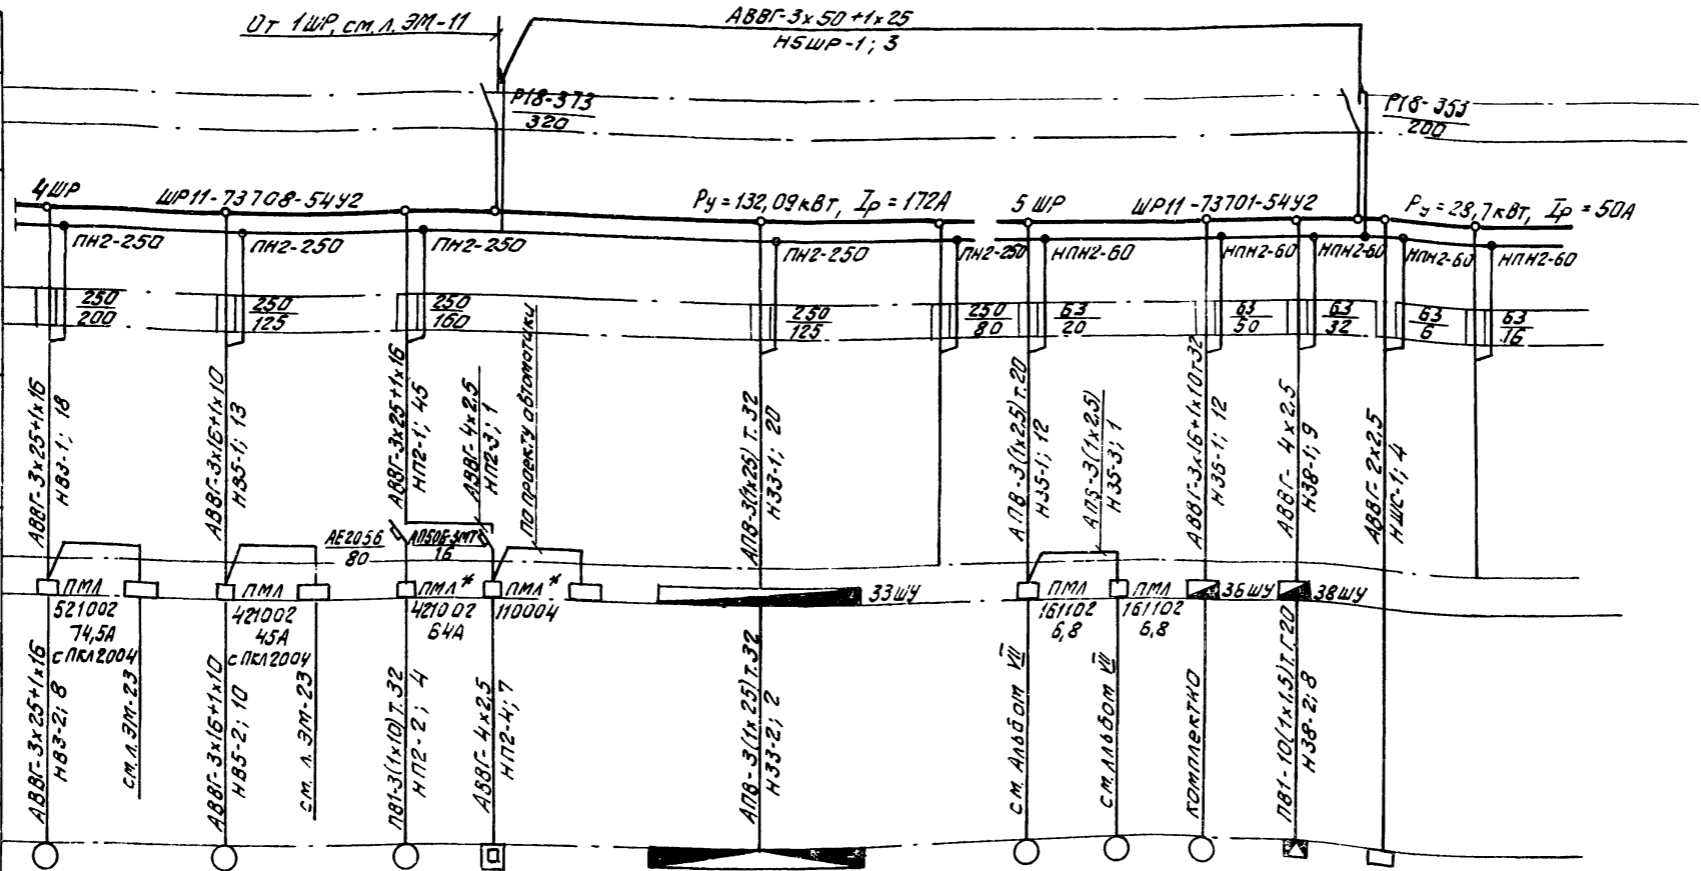 От 1ШР, см. л. ЭМ-11
АВВГ-3х50+1х25
Н5ШР-1; 3
Р18-373
320
Р18-353
200
4ШР
ШР11-73708-54У2
Ру=132,09кВт, Iр=172А
5 ШР
ШР11-73701-54У2
Ру=28,7кВт, Iр=50А
ПН2-250
ПН2-250
ПН2-250
ПН2-250
ПН2-250
НПН2-60
НПН2-60
НПН2-60
НПН2-60
НПН2-60
250
200
250
125
250
160
250
125
250
80
63
20
63
50
63
32
63
6
63
16
АВВГ-3х25+1х16
НВ3-1; 18
АВВГ-3х16+1х10
НВ5-1; 13
АВВГ-3х25+1х16
НП2-1; 45
АВВГ-4х2,5
НП2-3; 1
по проекту автоматики
АПВ-3(1х25) т.32
Н33-1; 20
АПВ-3(1х2,5) т.20
Н35-1; 12
АПВ-3(1х2,5)
Н35-3; 1
АВВГ-3х16+1х10т.32
Н36-1; 12
АВВГ-4х2,5
Н38-1; 9
АВВГ-2х2,5
НЩС-1; 4
АЕ2056
80
АП50Б-3МТ
16
ПМЛ
521002
74,5А
с ПКЛ2004
ПМЛ
421002
45А
с ПКЛ2004
ПМЛ*
421002
64А
ПМЛ*
110004
33ШУ
ПМЛ
161102
6,8
ПМЛ
161102
6,8
36ШУ
38ШУ
АВВГ-3х25+1х16
НВ3-2; 8
см. л. ЭМ-23
АВВГ-3х16+1х10
НВ5-2; 10
см. л. ЭМ-23
ПВ1-3(1х10)т.32
НП2-2; 4
АВВГ-4х2,5
НП2-4; 7
АПВ-3(1х25) т.32
Н33-2; 2
см. Альбом VII
см. Альбом VII
комплектно
ПВ1-10(1х1,5)т.г20
Н38-2; 8